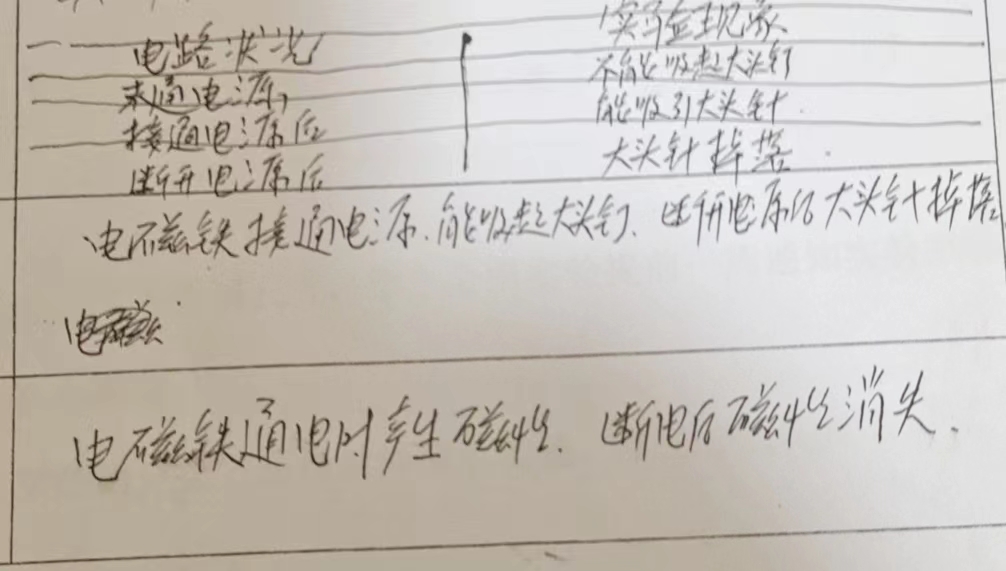 电路状况 实验现象
未通电源, 不能吸起大头钉
接通电源后 能吸引大头针.
断开电源后 大头针掉落.
电磁铁接通电源、能吸起大头钉、断开电源后大头针掉落
电磁
电磁铁通电时产生磁性、断电后磁性消失.